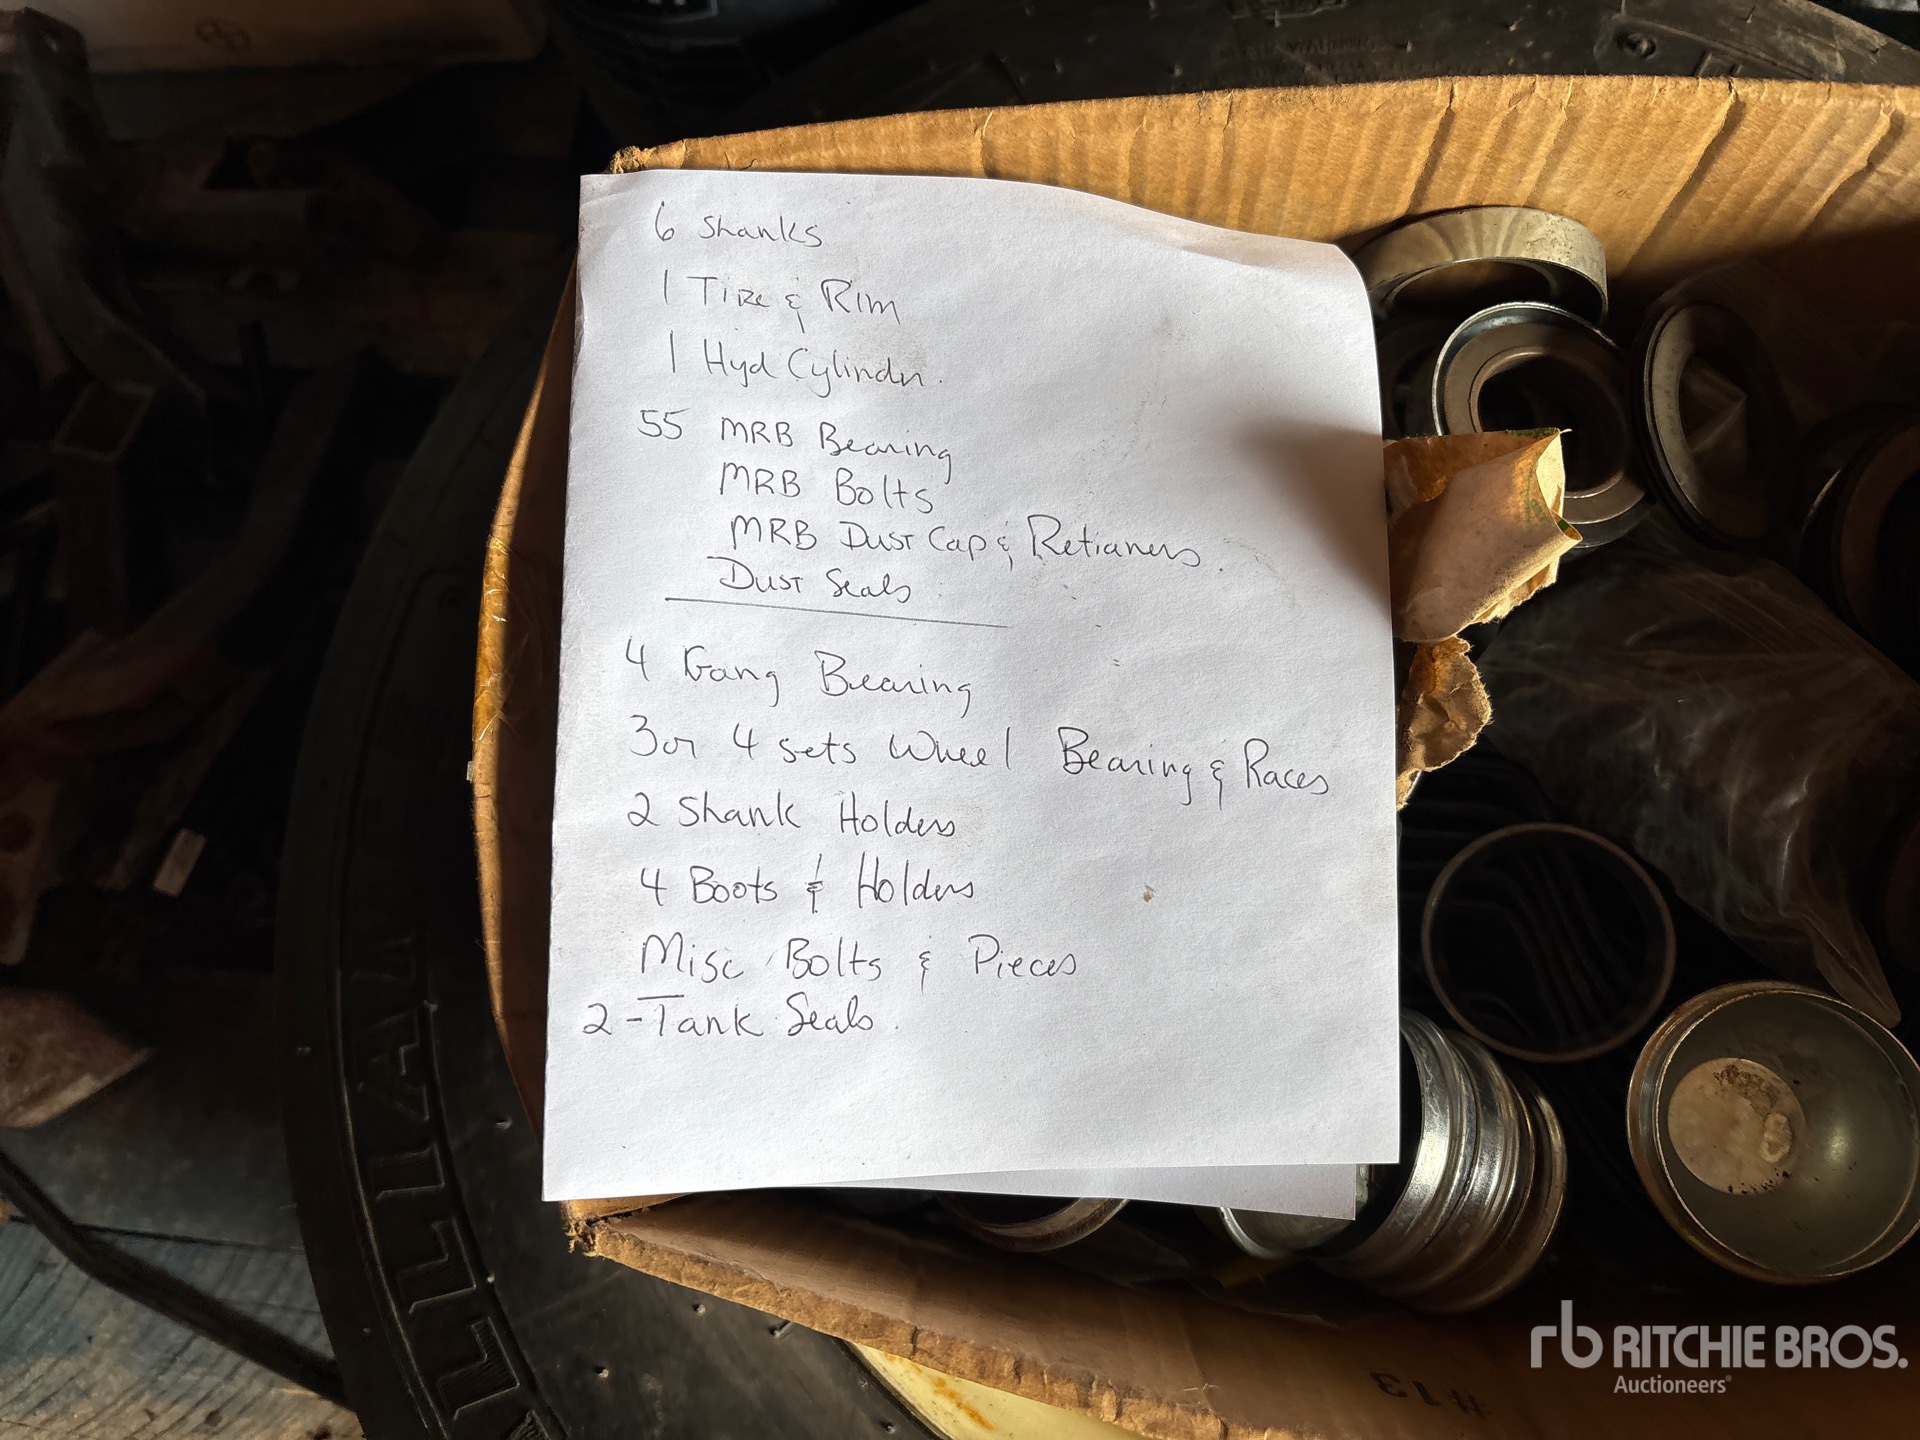 6 Shanks
1 Tire & Rim
1 Hyd Cylinder.
55 MRB Bearing
MRB Bolts
MRB Dust Cap & Retianers.
Dust Seals
4 Gang Bearing
3 or 4 sets Wheel Bearing & Races
2 Shank Holders
4 Boots & Holders
Misc Bolts & Pieces
2 - Tank Seals.
#13
rb RITCHIE BROS.
Auctioneers®